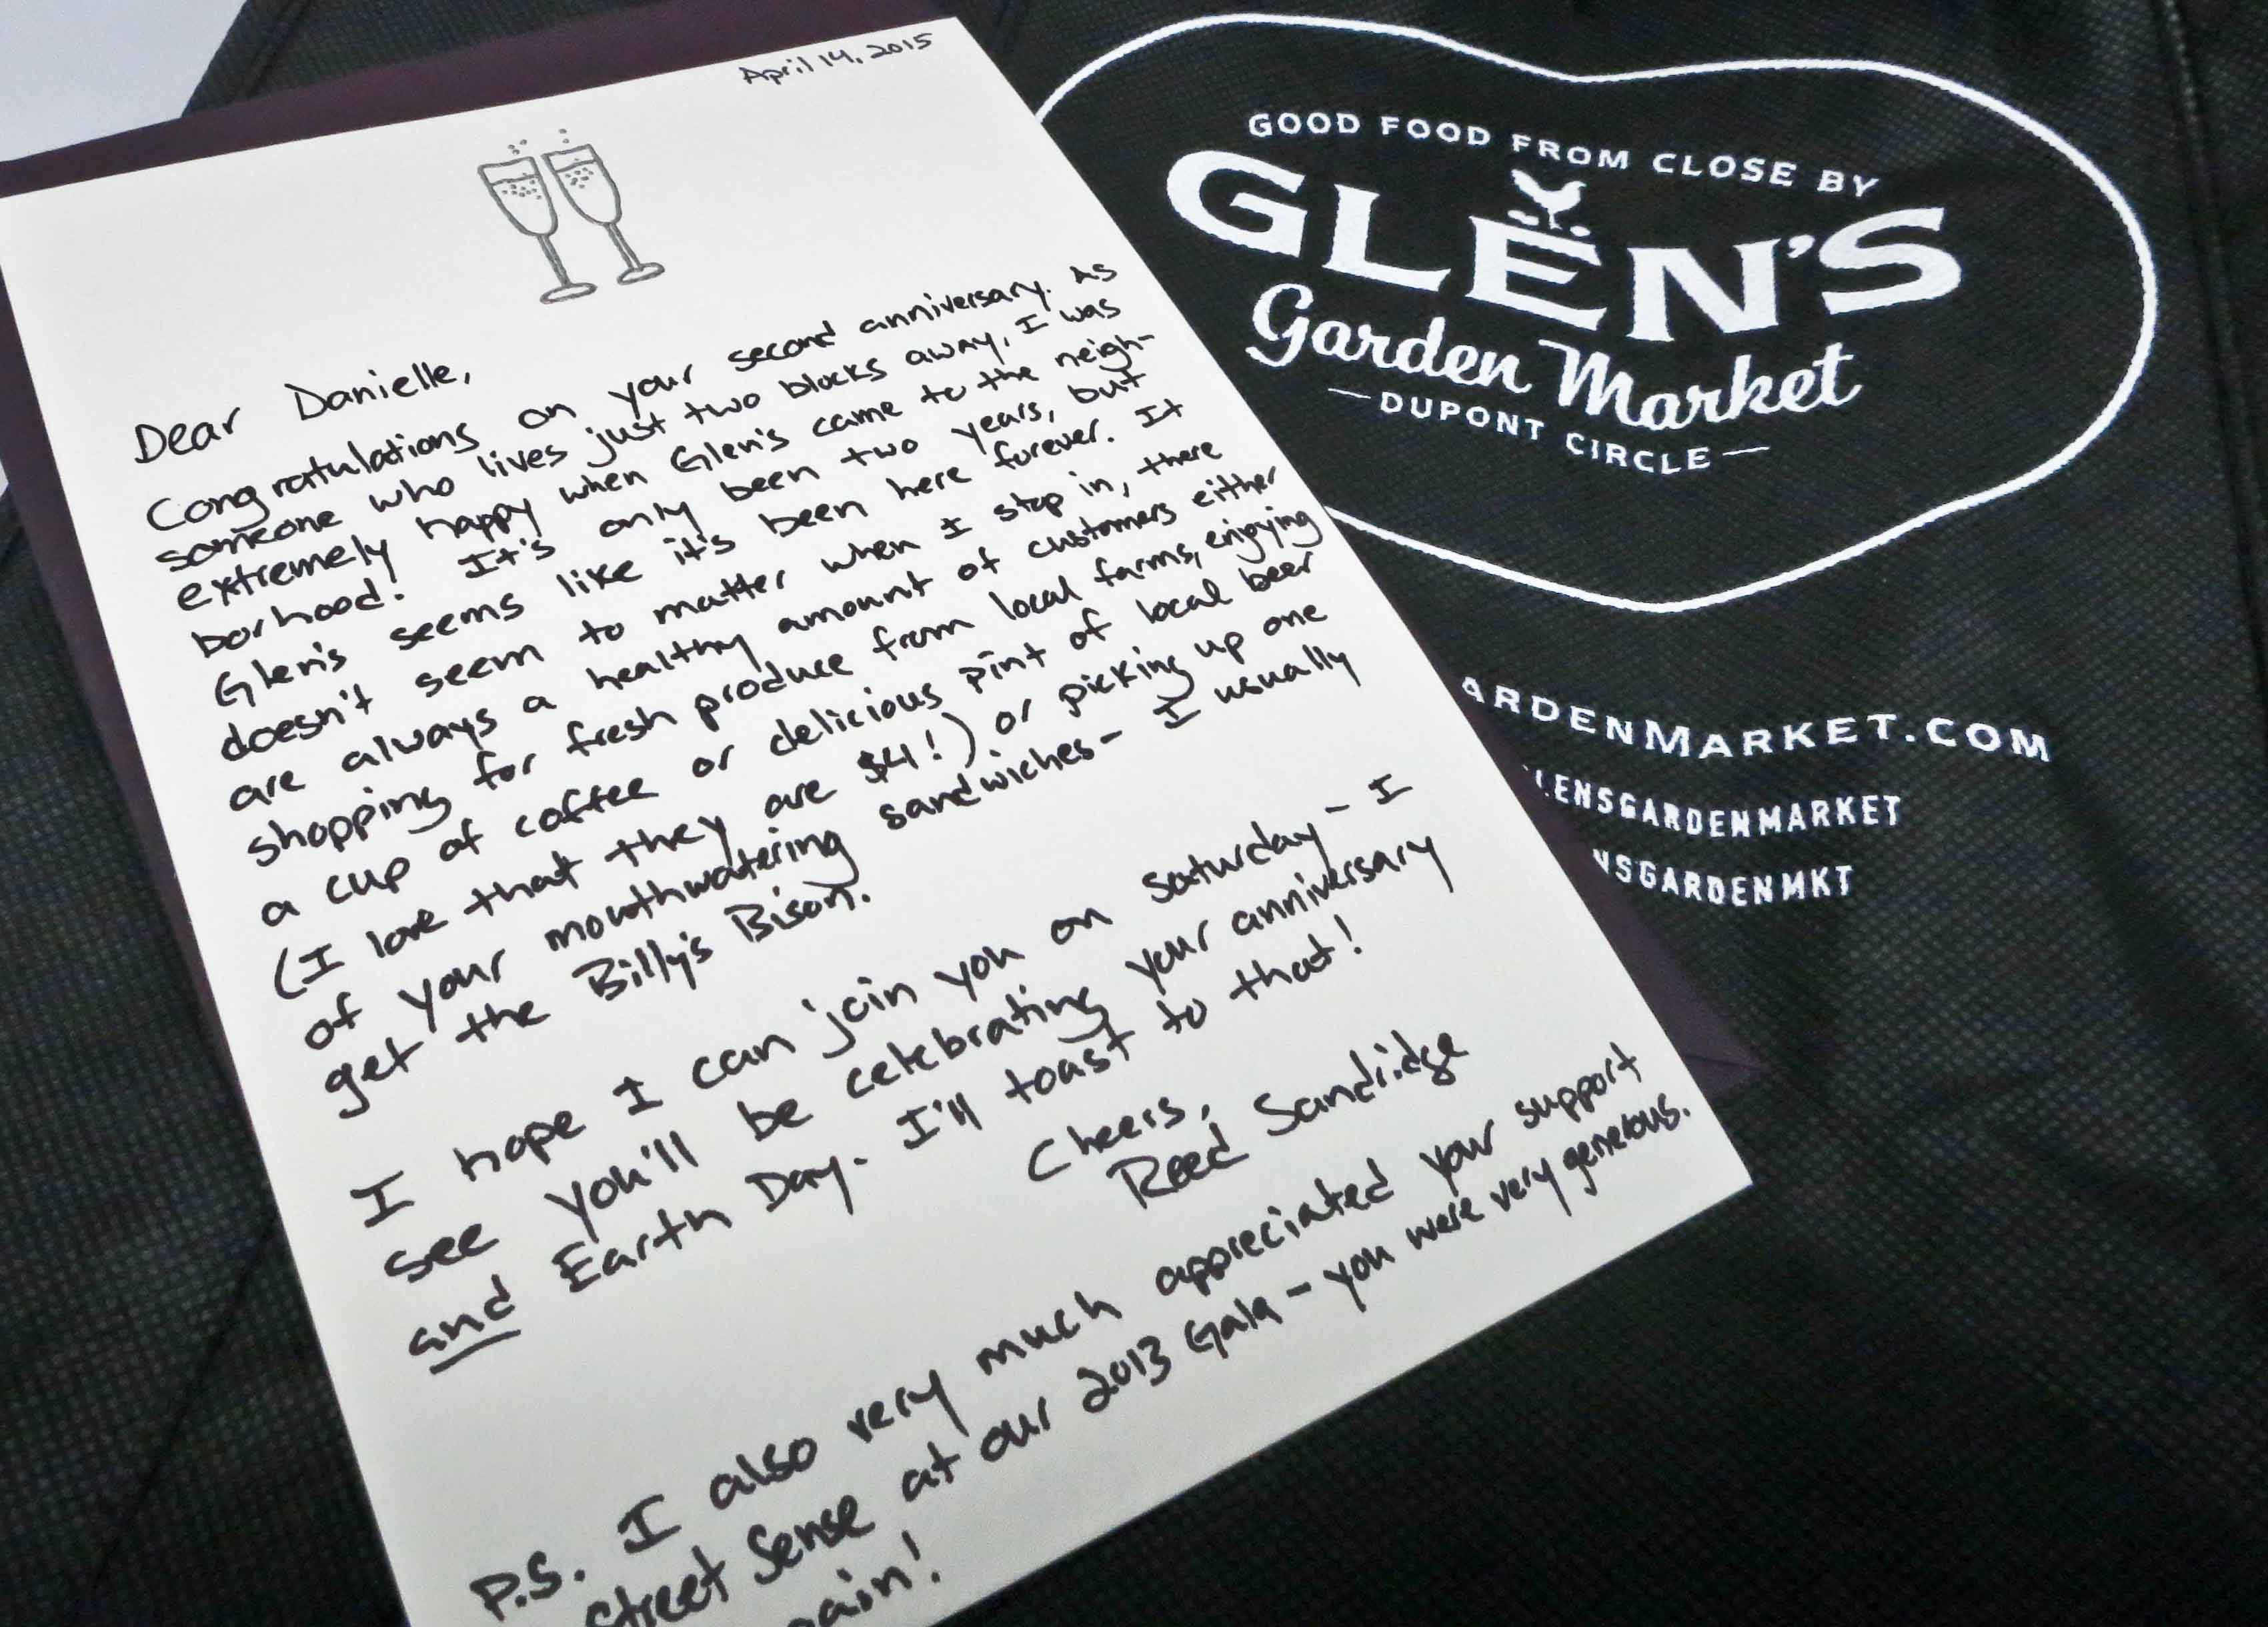 April 14, 2015
Dear Danielle,
Congratulations on your second anniversary. As
someone who lives just two blocks away, I was
extremely happy when Glen's came to the neigh-
borhood! It's only been two years, but
Glen's seems like it's been here forever. It
doesn't seem to matter when I stop in, there
are always a healthy amount of customers either
shopping for fresh produce from local farms, enjoying
a cup of coffee or delicious pint of local beer
(I love that they are $4!) or picking up one
of your mouthwatering sandwiches - I usually
get the Billy's Bison.
I hope I can join you on Saturday - I
see you'll be celebrating your anniversary
and Earth Day. I'll toast to that!
Cheers,
Reed Sandridge
P.S. I also very much appreciated your support
Street Sense at our 2013 Gala - you were very generous.
ain!
GOOD FOOD FROM CLOSE BY
GLEN'S
Garden Market
— DUPONT CIRCLE —
ARDENMARKET.COM
LENSGARDENMARKET
NSGARDENMKT